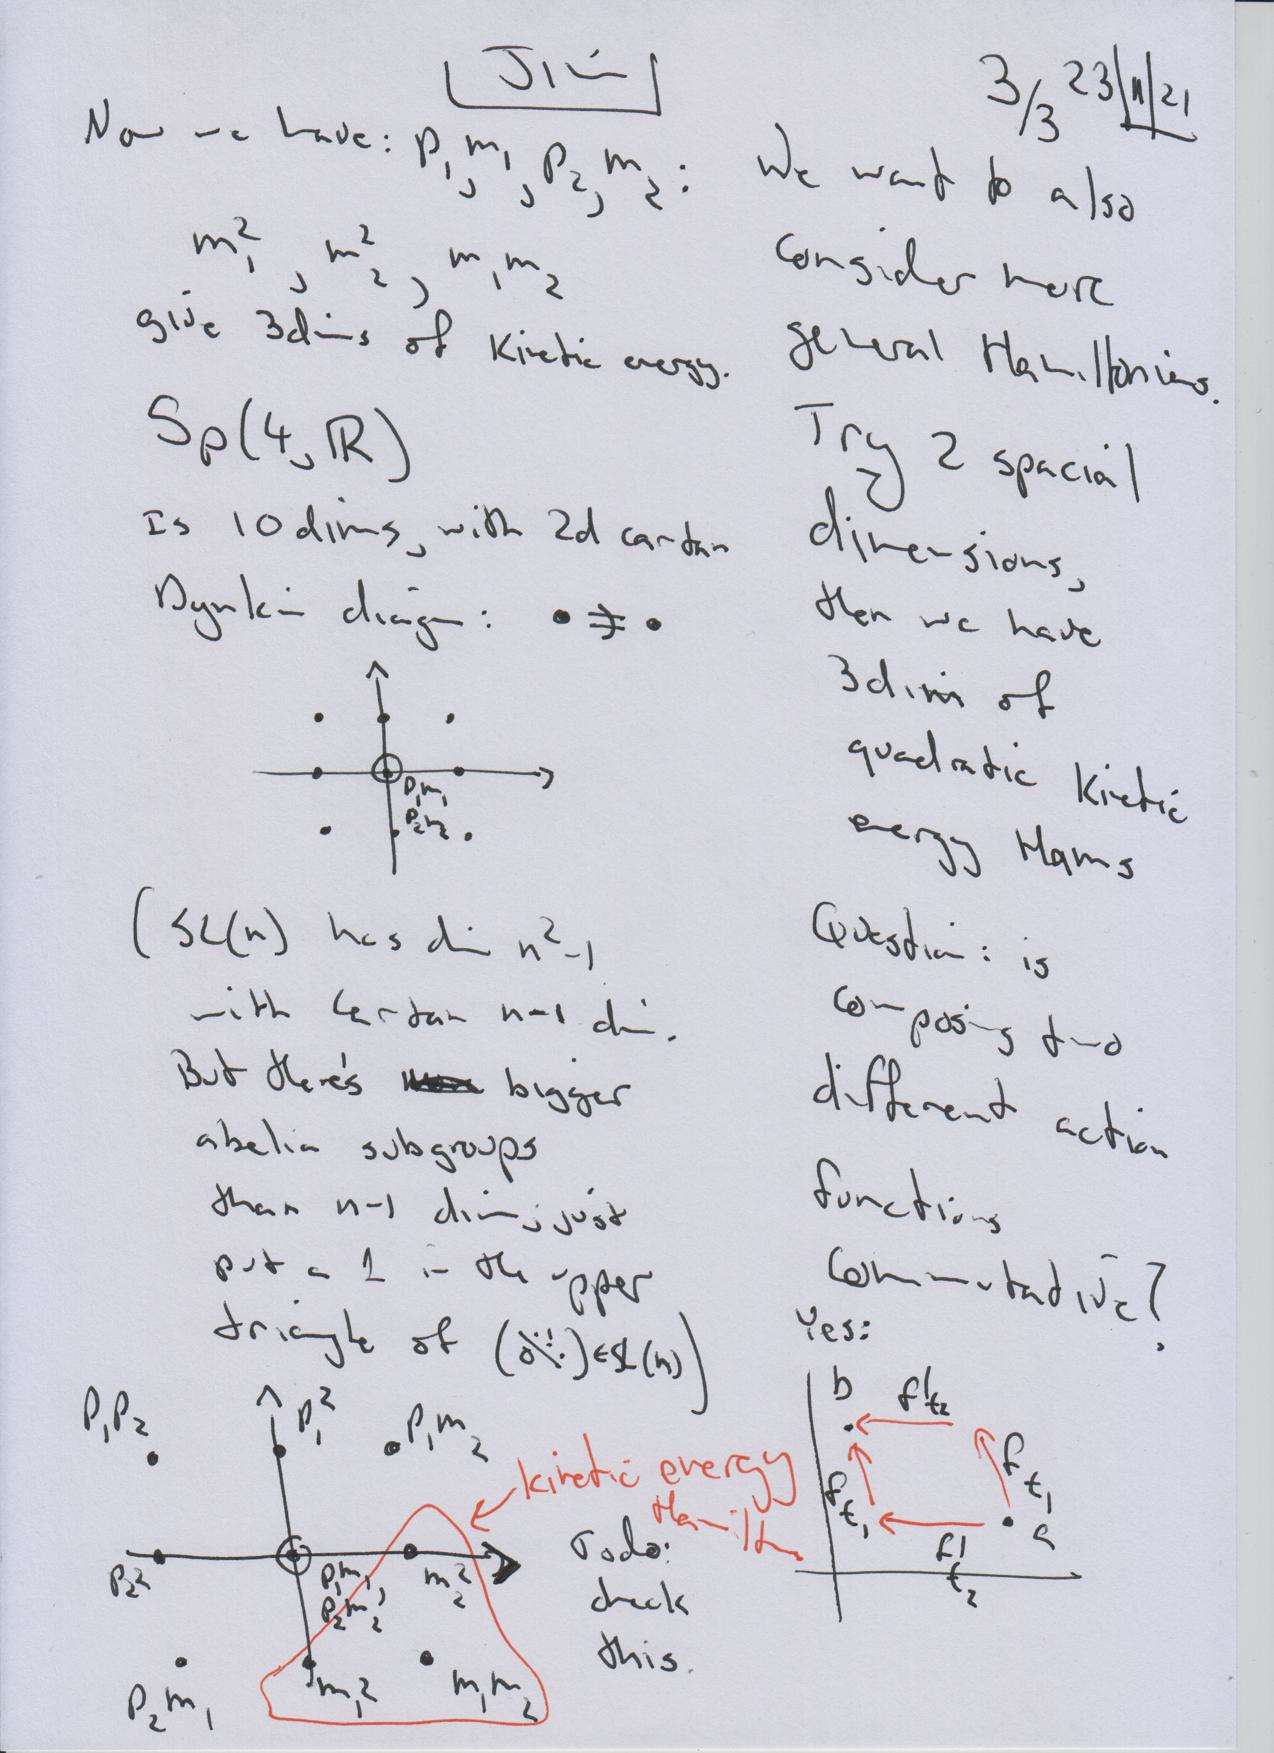 Jim
3/3 23|11|21
Now we have: p₁, m₁, p₂, m₂:
m₁², m₂², m₁m₂
give 3dims of kinetic energy.
Sp(4, ℝ)
Is 10 dims, with 2d cartan
Dynkin diagm:
p₁m₁
p₂m₂
(SL(n) has dim n²-1
with Cartan n-1 dim.
But there's bigger
abelian subgroups
than n-1 dim, just
put a 1 in the upper
triangle of ( ) ∈ SL(n))
p₁p₂
p₁²
p₁m₂
p₂²
p₁m₁,
p₂m₂
m₂²
p₂m₁
m₁²
m₁m₂
kinetic energy
Hamiltn
Todo:
check
this.
We want to also
consider more
general Hamiltonians.
Try 2 spacial
dimensions,
then we have
3dim of
quadratic kinetic
energy Hams
Question: is
composing two
different action
functions
commutative?
Yes:
b
f't₂
ft₁
ft₁
a
f't₂